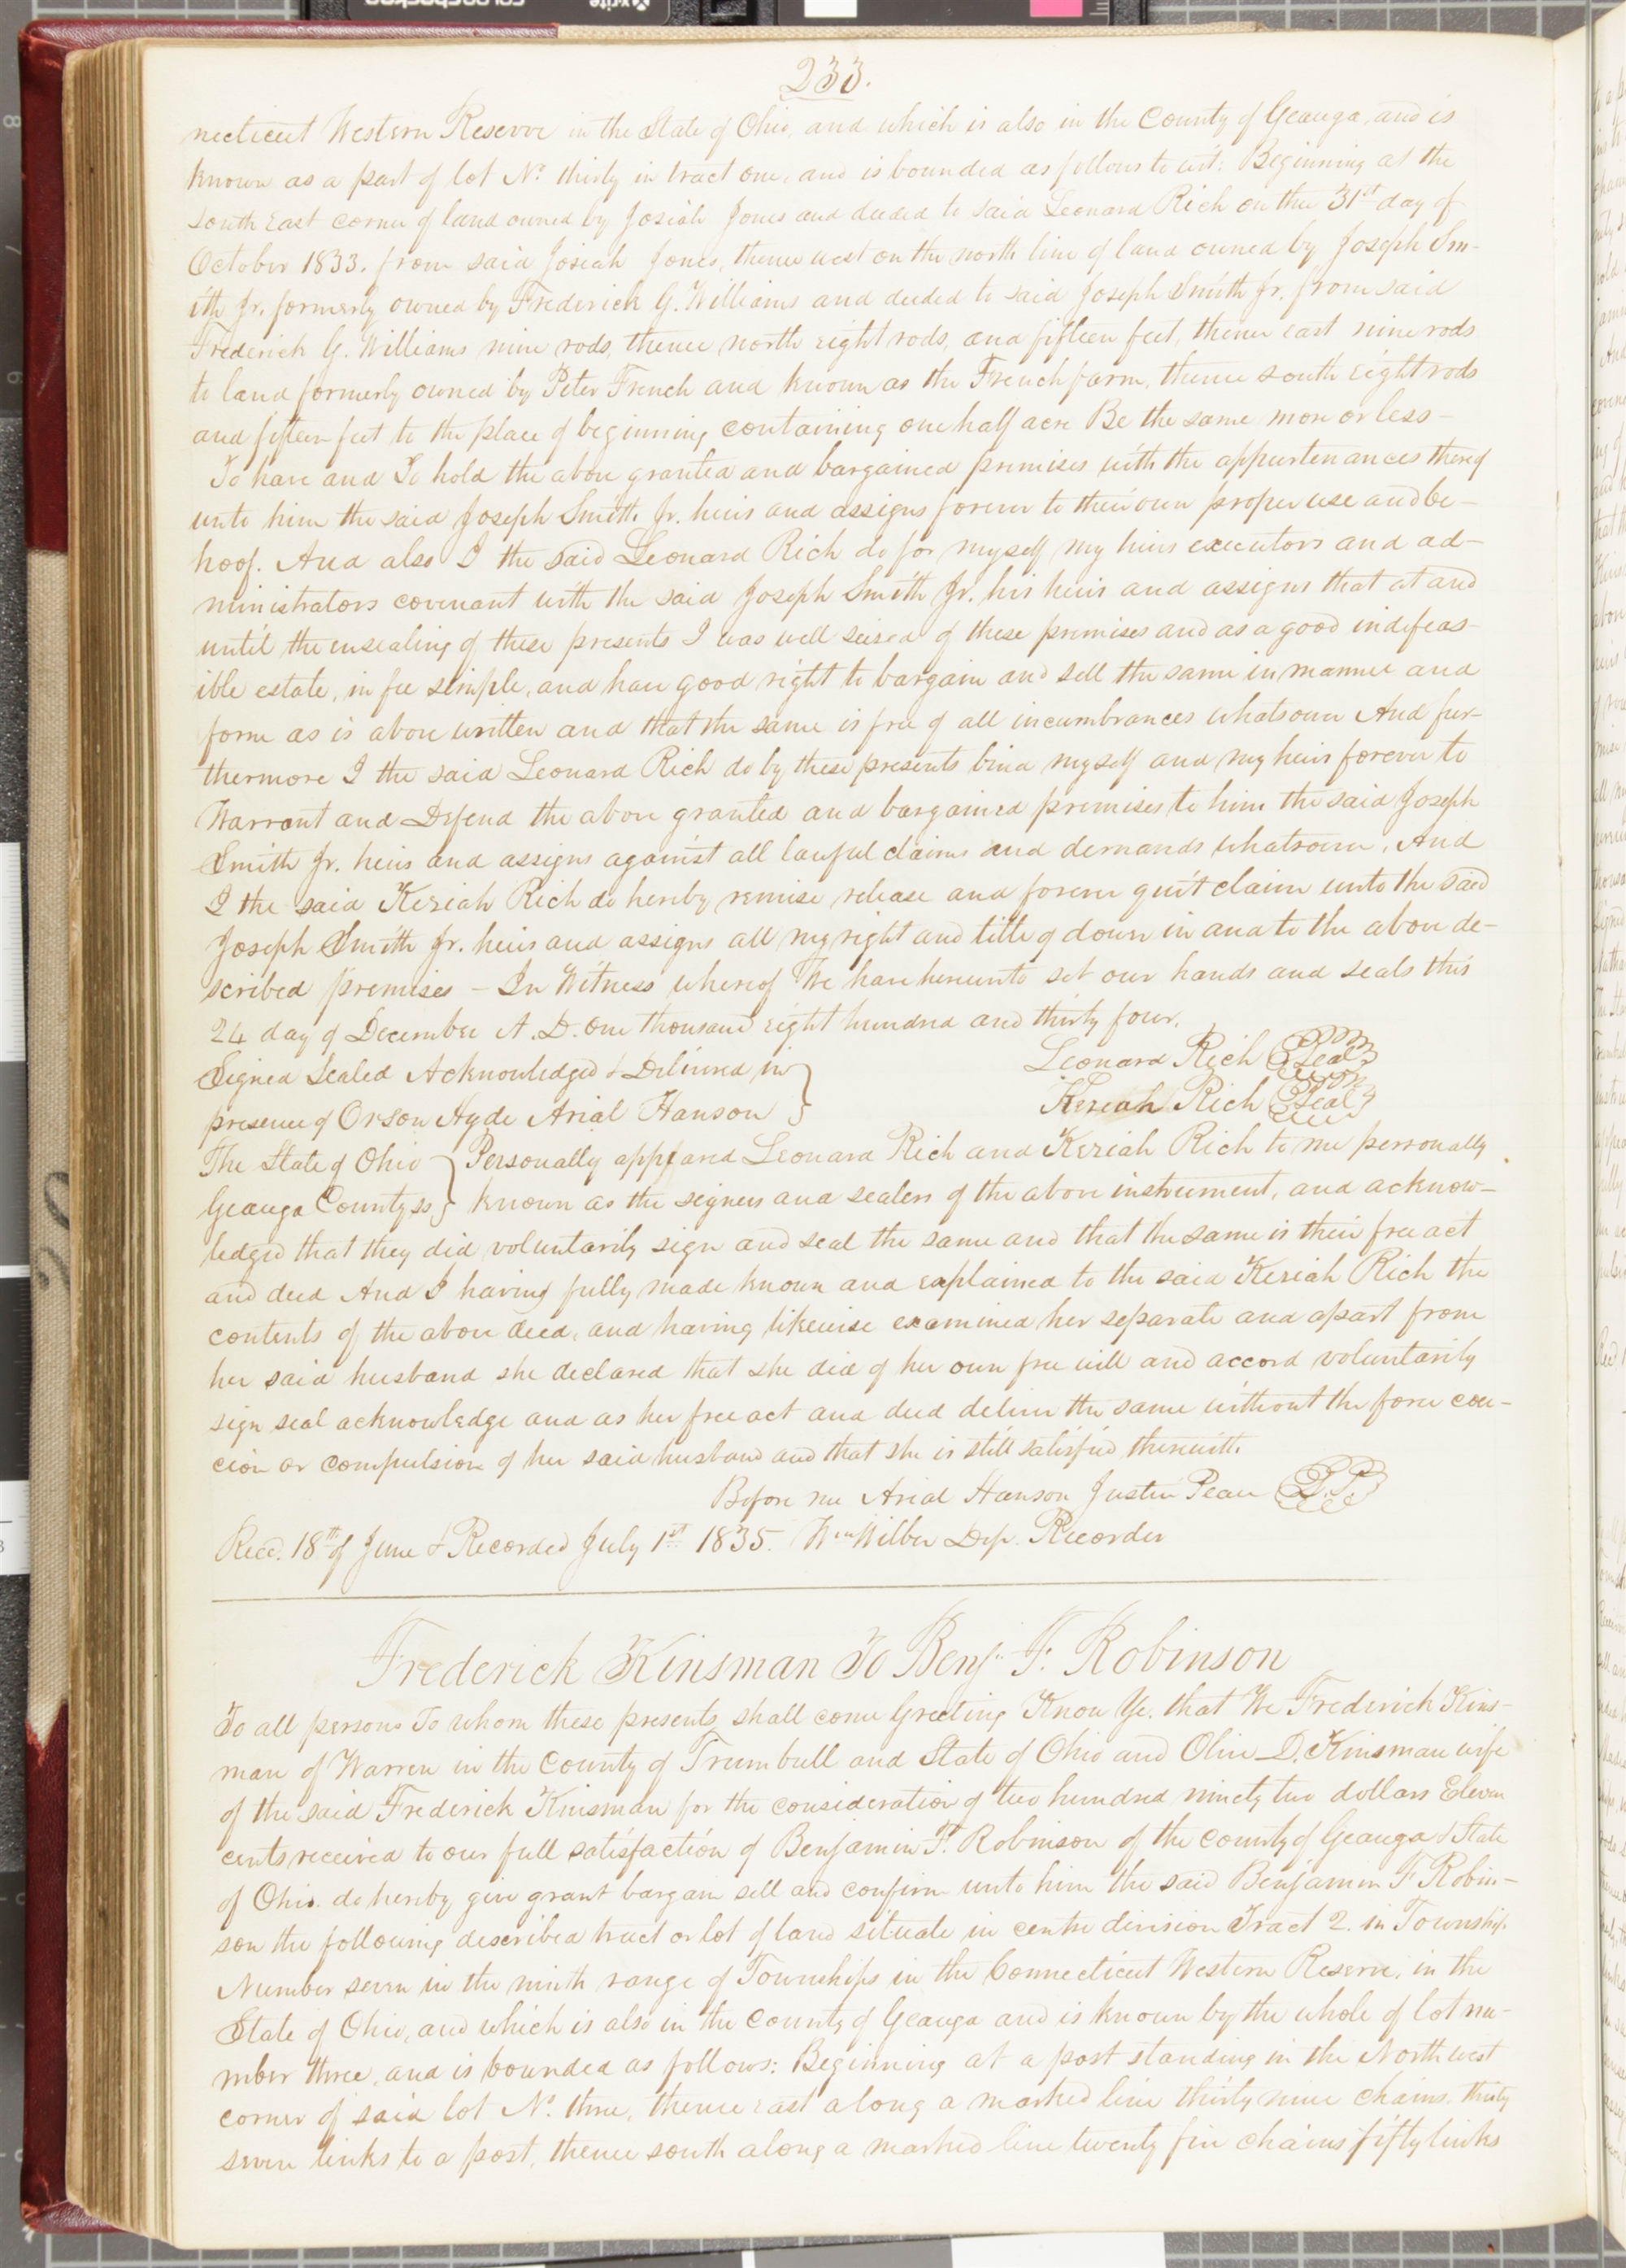 233.
necticut Western Reserve in the State of Ohio, and which is also in the County of Geauga, and is
known as a part of lot No. thirty in tract one, and is bounded as follows to wit: Beginning at the
south east corner of land owned by Josiah Jones and deeded to said Leonard Rich on the 31st day of
October 1833. from said Josiah Jones, thence west on the north line of land owned by Joseph Sm-
ith Jr. formerly owned by Frederick G. Williams and deeded to said Joseph Smith Jr. from said
Frederick G. Williams nine rods, thence north eight rods, and fifteen feet, thence east nine rods
to land formerly owned by Peter French and known as the French farm, thence south eight rods
and fifteen feet to the place of beginning containing one half acre Be the same more or less—
To have and To hold the above granted and bargained premises with the appurtenances thereof
unto him the said Joseph Smith Jr. heirs and assigns forever to their own proper use and be-
hoof. And also I the said Leonard Rich do for myself my heirs executors and ad-
ministrators covenant with the said Joseph Smith Jr. his heirs and assigns that at and
until the ensealing of these presents I was well seised of these premises and as a good indefeas-
ible estate, in fee simple, and have good right to bargain and sell the same in manner and
form as is above written and that the same is free of all incumbrances whatsoever And fur-
thermore I the said Leonard Rich do by these presents bind myself and my heirs forever to
Warrant and Defend the above granted and bargained premises to him the said Joseph
Smith Jr. heirs and assigns against all lawful claims and demands whatsoever. And
I the said Keziah Rich do hereby remise release and forever quit claim unto the said
Joseph Smith Jr. heirs and assigns all my right and title of dower in and to the above de-
scribed premises — In Witness whereof We have hereunto set our hands and seals this
24 day of December A. D. one thousand eight hundred and thirty four.
Signed Sealed Acknowledged & Delivered in } Leonard Rich Seal
presence of Orson Hyde Arial Hanson } Keziah Rich Seal
The State of Ohio } Personally appeared Leonard Rich and Keziah Rich to me personally
Geauga County ss } known as the signers and sealers of the above instrument, and acknow-
ledged that they did voluntarily sign and seal the same and that the same is their free act
and deed And I having fully made known and explained to the said Keziah Rich the
contents of the above deed, and having likewise examined her separate and apart from
her said husband she declared that she did of her own free will and accord voluntarily
sign seal acknowledge and as her free act and deed deliver the same without the force coer-
cion or compulsion of her said husband and that she is still satisfied therewith.
Before me Arial Hanson Justice Peace
Recd. 18th of June & Recorded July 1st 1835. Wm Wilber Dep. Recorder
Frederick Kinsman To Benj. F. Robinson
To all persons To whom these presents shall come Greeting Know Ye. that We Frederick Kins-
man of Warren in the County of Trumbull and State of Ohio and Olive D. Kinsman wife
of the said Frederick Kinsman for the consideration of two hundred ninety two dollars Eleven
cents received to our full satisfaction of Benjamin F. Robinson of the county of Geauga & State
of Ohio. do hereby give grant bargain sell and confirm unto him the said Benjamin F Robin-
son the following described tract or lot of land situate in centre division Tract 2. in Township
Number seven in the ninth range of Townships in the Connecticut Western Reserve, in the
State of Ohio, and which is also in the County of Geauga and is known by the whole of lot nu-
mber three, and is bounded as follows: Beginning at a post standing in the North west
corner of said lot No. three, thence east along a marked line thirty nine chains, thirty
seven links to a post, thence south along a marked line twenty five chains fifty links